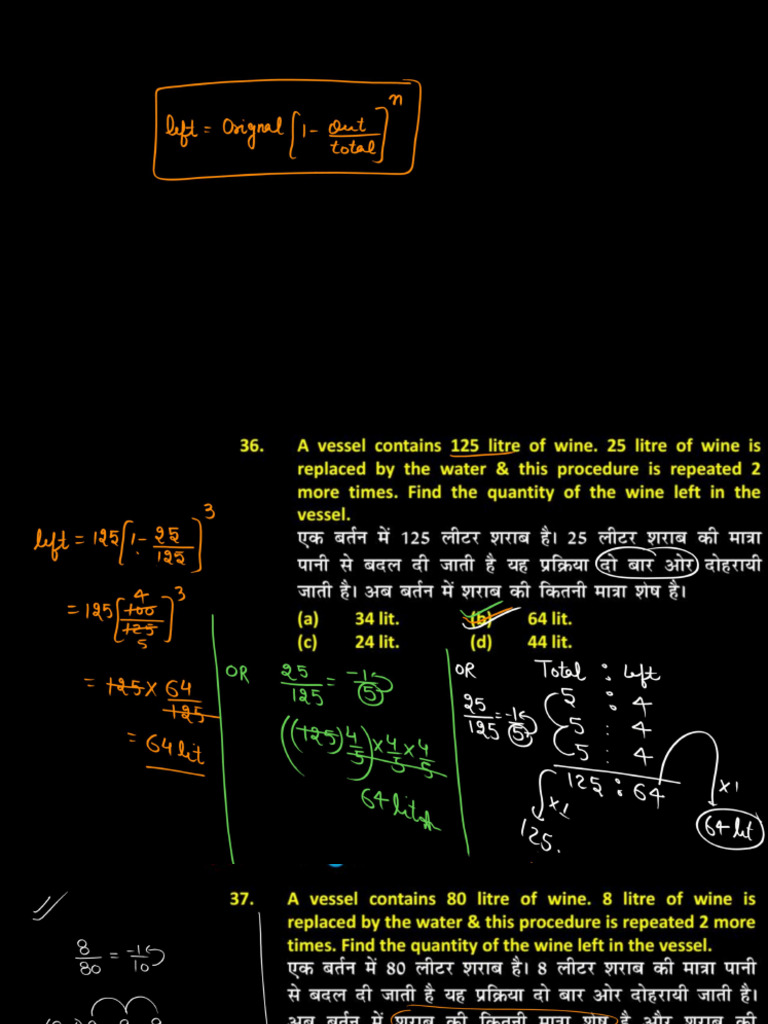 left = Orignal [1 - out/total]^n
36. A vessel contains 125 litre of wine. 25 litre of wine is
replaced by the water & this procedure is repeated 2
more times. Find the quantity of the wine left in the
vessel.
एक बर्तन में 125 लीटर शराब है। 25 लीटर शराब की मात्रा
पानी से बदल दी जाती है यह प्रक्रिया दो बार ओर दोहरायी
जाती है। अब बर्तन में शराब की कितनी मात्रा शेष है।
(a) 34 lit. (b) 64 lit.
(c) 24 lit. (d) 44 lit.
left = 125 [1 - 25/125]^3
= 125 [100/125]^3
4
5
= 125 × 64/125
= 64 lit
OR 25/125 = -1/5
((125) 4/5) × 4/5 × 4/5
64 lit
OR Total : left
25/125 = -1/5
5 : 4
5 : 4
5 : 4
125 : 64
×1 ×1
125. 64 lit
37. A vessel contains 80 litre of wine. 8 litre of wine is
replaced by the water & this procedure is repeated 2 more
times. Find the quantity of the wine left in the vessel.
एक बर्तन में 80 लीटर शराब है। 8 लीटर शराब की मात्रा पानी
से बदल दी जाती है यह प्रक्रिया दो बार ओर दोहरायी जाती है।
अब बर्तन में शराब की कितनी मात्रा शेष है और शराब की
8/80 = -1/10